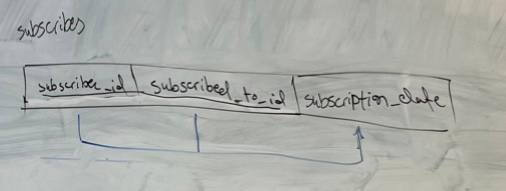 subscribes
subscriber_id subscribed_to_id subscription_date